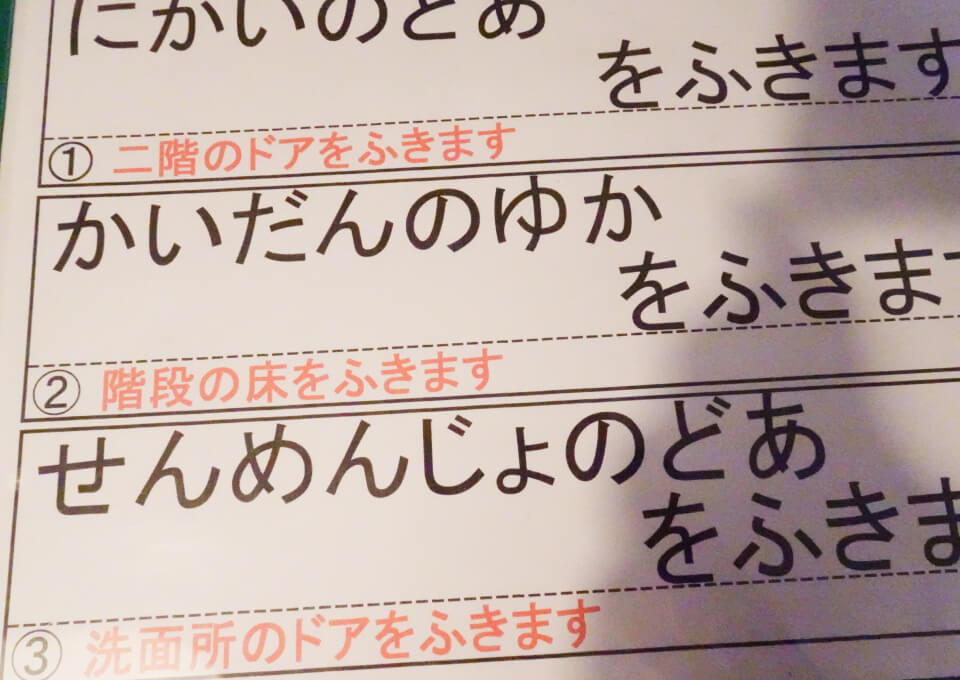 にかいのどあ
をふきます
① 二階のドアをふきます
かいだんのゆか
をふきます
② 階段の床をふきます
せんめんじょのどあ
をふきま
③ 洗面所のドアをふきます